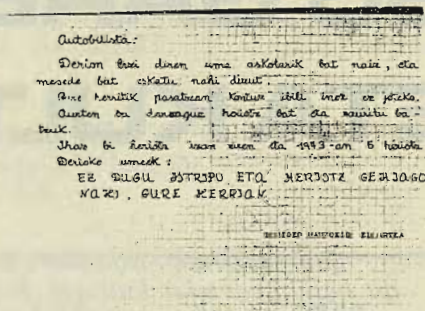 Autobilista:
Derion bizi diren ume askotarik bat naiz, eta
mesede bat eskatu nahi dizut.
Gure herritik pasatzean kontuz ibili inor ez jotzeko.
Aurten ba daroagu heriotz bat eta zauritu ba-
tzuk.
Ihaz bi heriotz izan ziren eta 1973-an 5 heriotz.
Derioko umeek:
EZ DUGU ISTRIPU ETA HERIOTZ GEHIAGO
NAHI, GURE HERRIAN